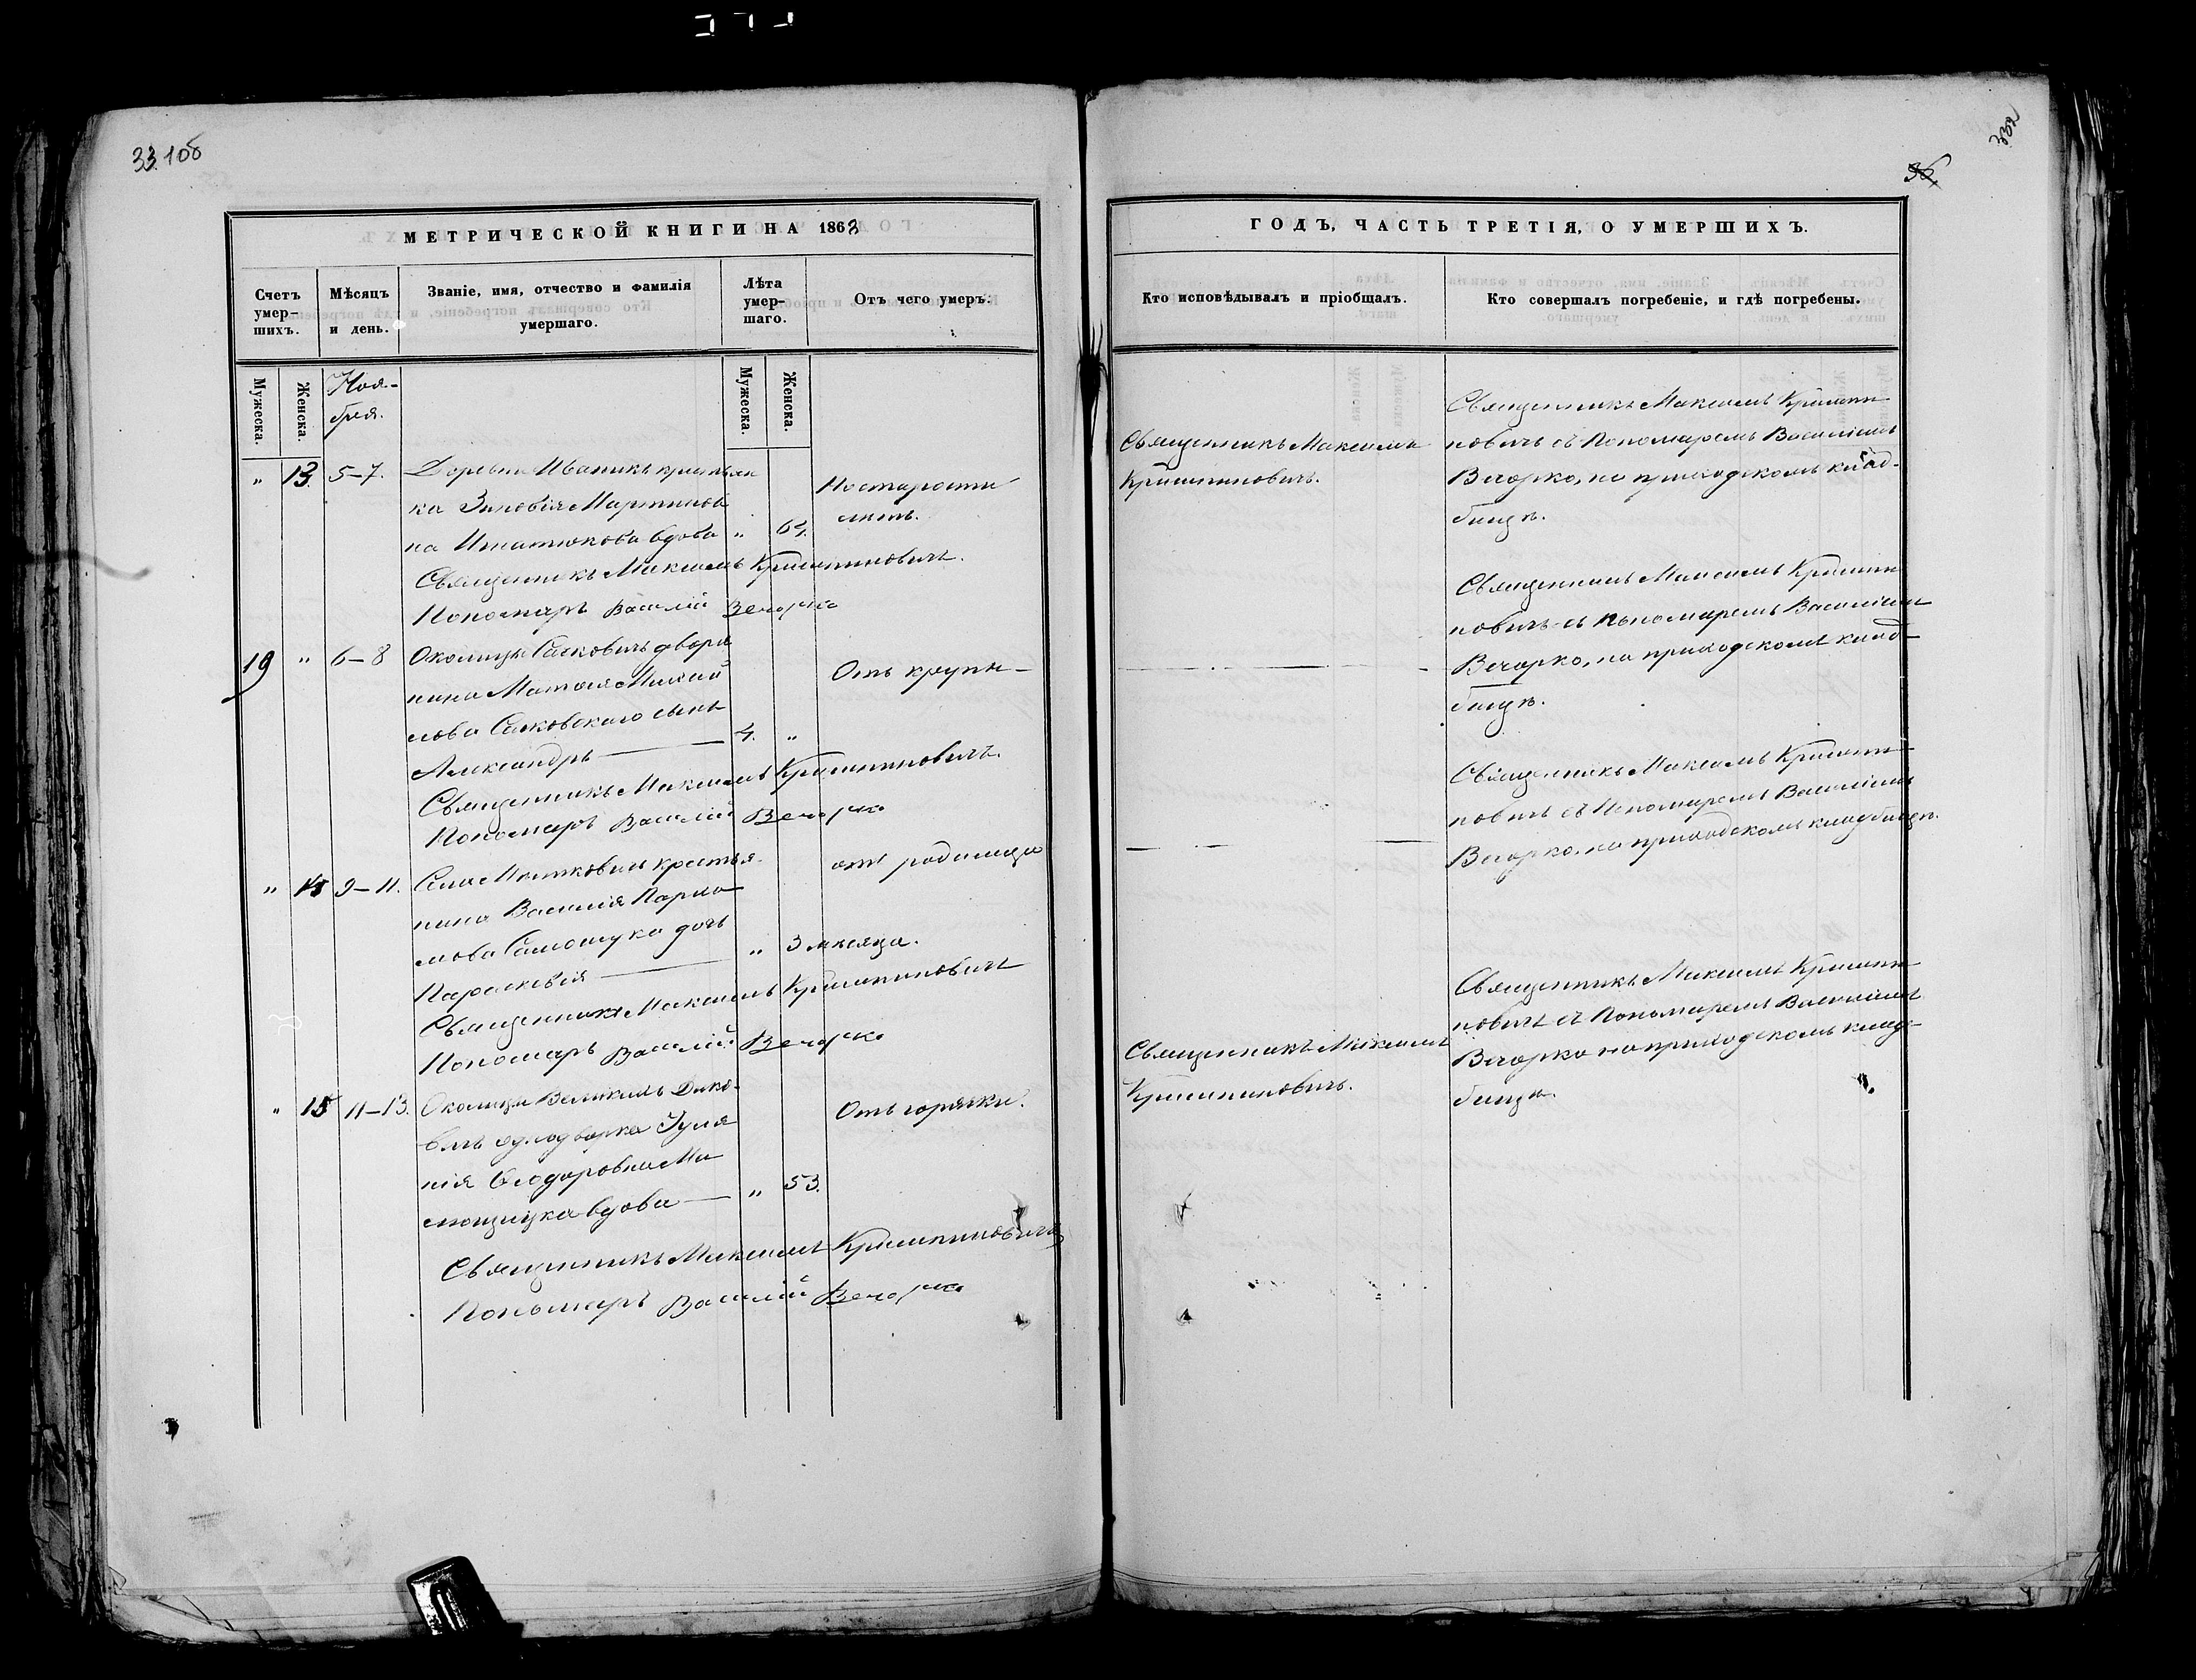 331 об
МЕТРИЧЕСКОЙ КНИГИ НА 1863
Счетъ умер-шихъ.
Мѣсяцъ и день.
Званіе, имя, отчество и фамилія умершаго.
Лѣта умер-шаго.
Отъ чего умеръ.
Мужеска.
Женска.
Ноя-
бря.
Мужеска.
Женска.
" 13. 5–7. Деревни Иваникъ крестьян
ка Зиновія Мартинов
на Игнатюкова вдова " 64.
По старости
лѣтъ.
Священникъ Максимъ Криштиновичъ.
Пономарь Василій Вечорко
19 " 6–8 Околицы Сачковичъ дворя
нина Матвея Михай
лова Сачковскаго сынъ
Александръ 4. "
Отъ крупи
Священникъ Максимъ Криштиновичъ.
Пономарь Василій Вечорко
" 14 9–11. Села Молотковичъ крестья-
нина Василія Парѳе
мова Самошука дочь
Параскевія " 3 мѣсяца.
отъ родимца
Священникъ Максимъ Криштиновичъ
Пономарь Василій Вечорко
" 15 11–13. Околицы Великихъ Дико-
вичъ однодворка Іуля
нія Ѳеодоровна
вдова " 53.
Отъ горячки.
Священникъ Максимъ Криштиновичъ
Пономарь Василій Вечорко
332
36
ГОДЪ, ЧАСТЬ ТРЕТІЯ, О УМЕРШИХЪ.
Кто исповѣдывалъ и пріобщалъ.
Кто совершалъ погребеніе, и гдѣ погребены.
Священникъ Максимъ
Криштиновичъ.
Священникъ Максимъ Кришти
новичъ съ Пономаремъ Василіемъ
Вечорко, на приходскомъ клад-
бищѣ.
Священникъ Максимъ Кришти
новичъ съ Пономаремъ Василіемъ
Вечорко, на приходскомъ клад-
бищѣ.
Священникъ Максимъ Кришти
новичъ съ Пономаремъ Василіемъ
Вечорко, на приходскомъ кладбищѣ.
Священникъ Максимъ
Криштиновичъ.
Священникъ Максимъ Кришти
новичъ съ Пономаремъ Василіемъ
Вечорко на приходскомъ клад-
бищѣ.